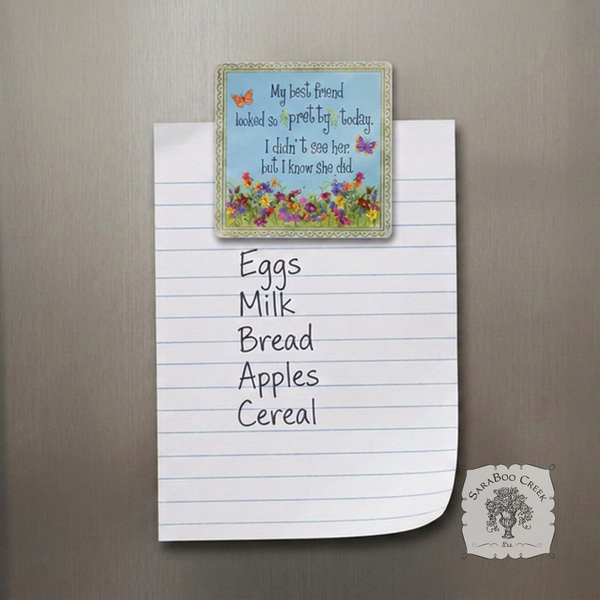 My best friend
looked so pretty today.
I didn't see her,
but I know she did.
Eggs
Milk
Bread
Apples
Cereal
SaraBoo Creek
Ltd.